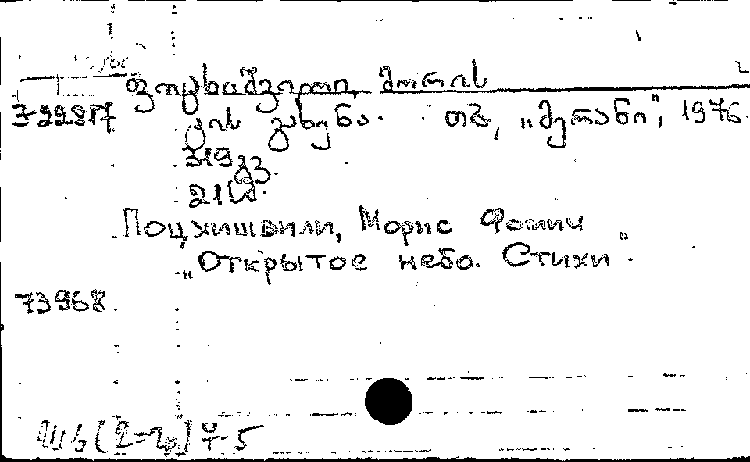 ფოცხიშვილი, მორის
ცის გახსნა. თბ., „მერანი", 1976.
319 გვ.
21 სმ.
Поцхишвили, Морис Фомич
„Открытое небо. Стихи".
73968